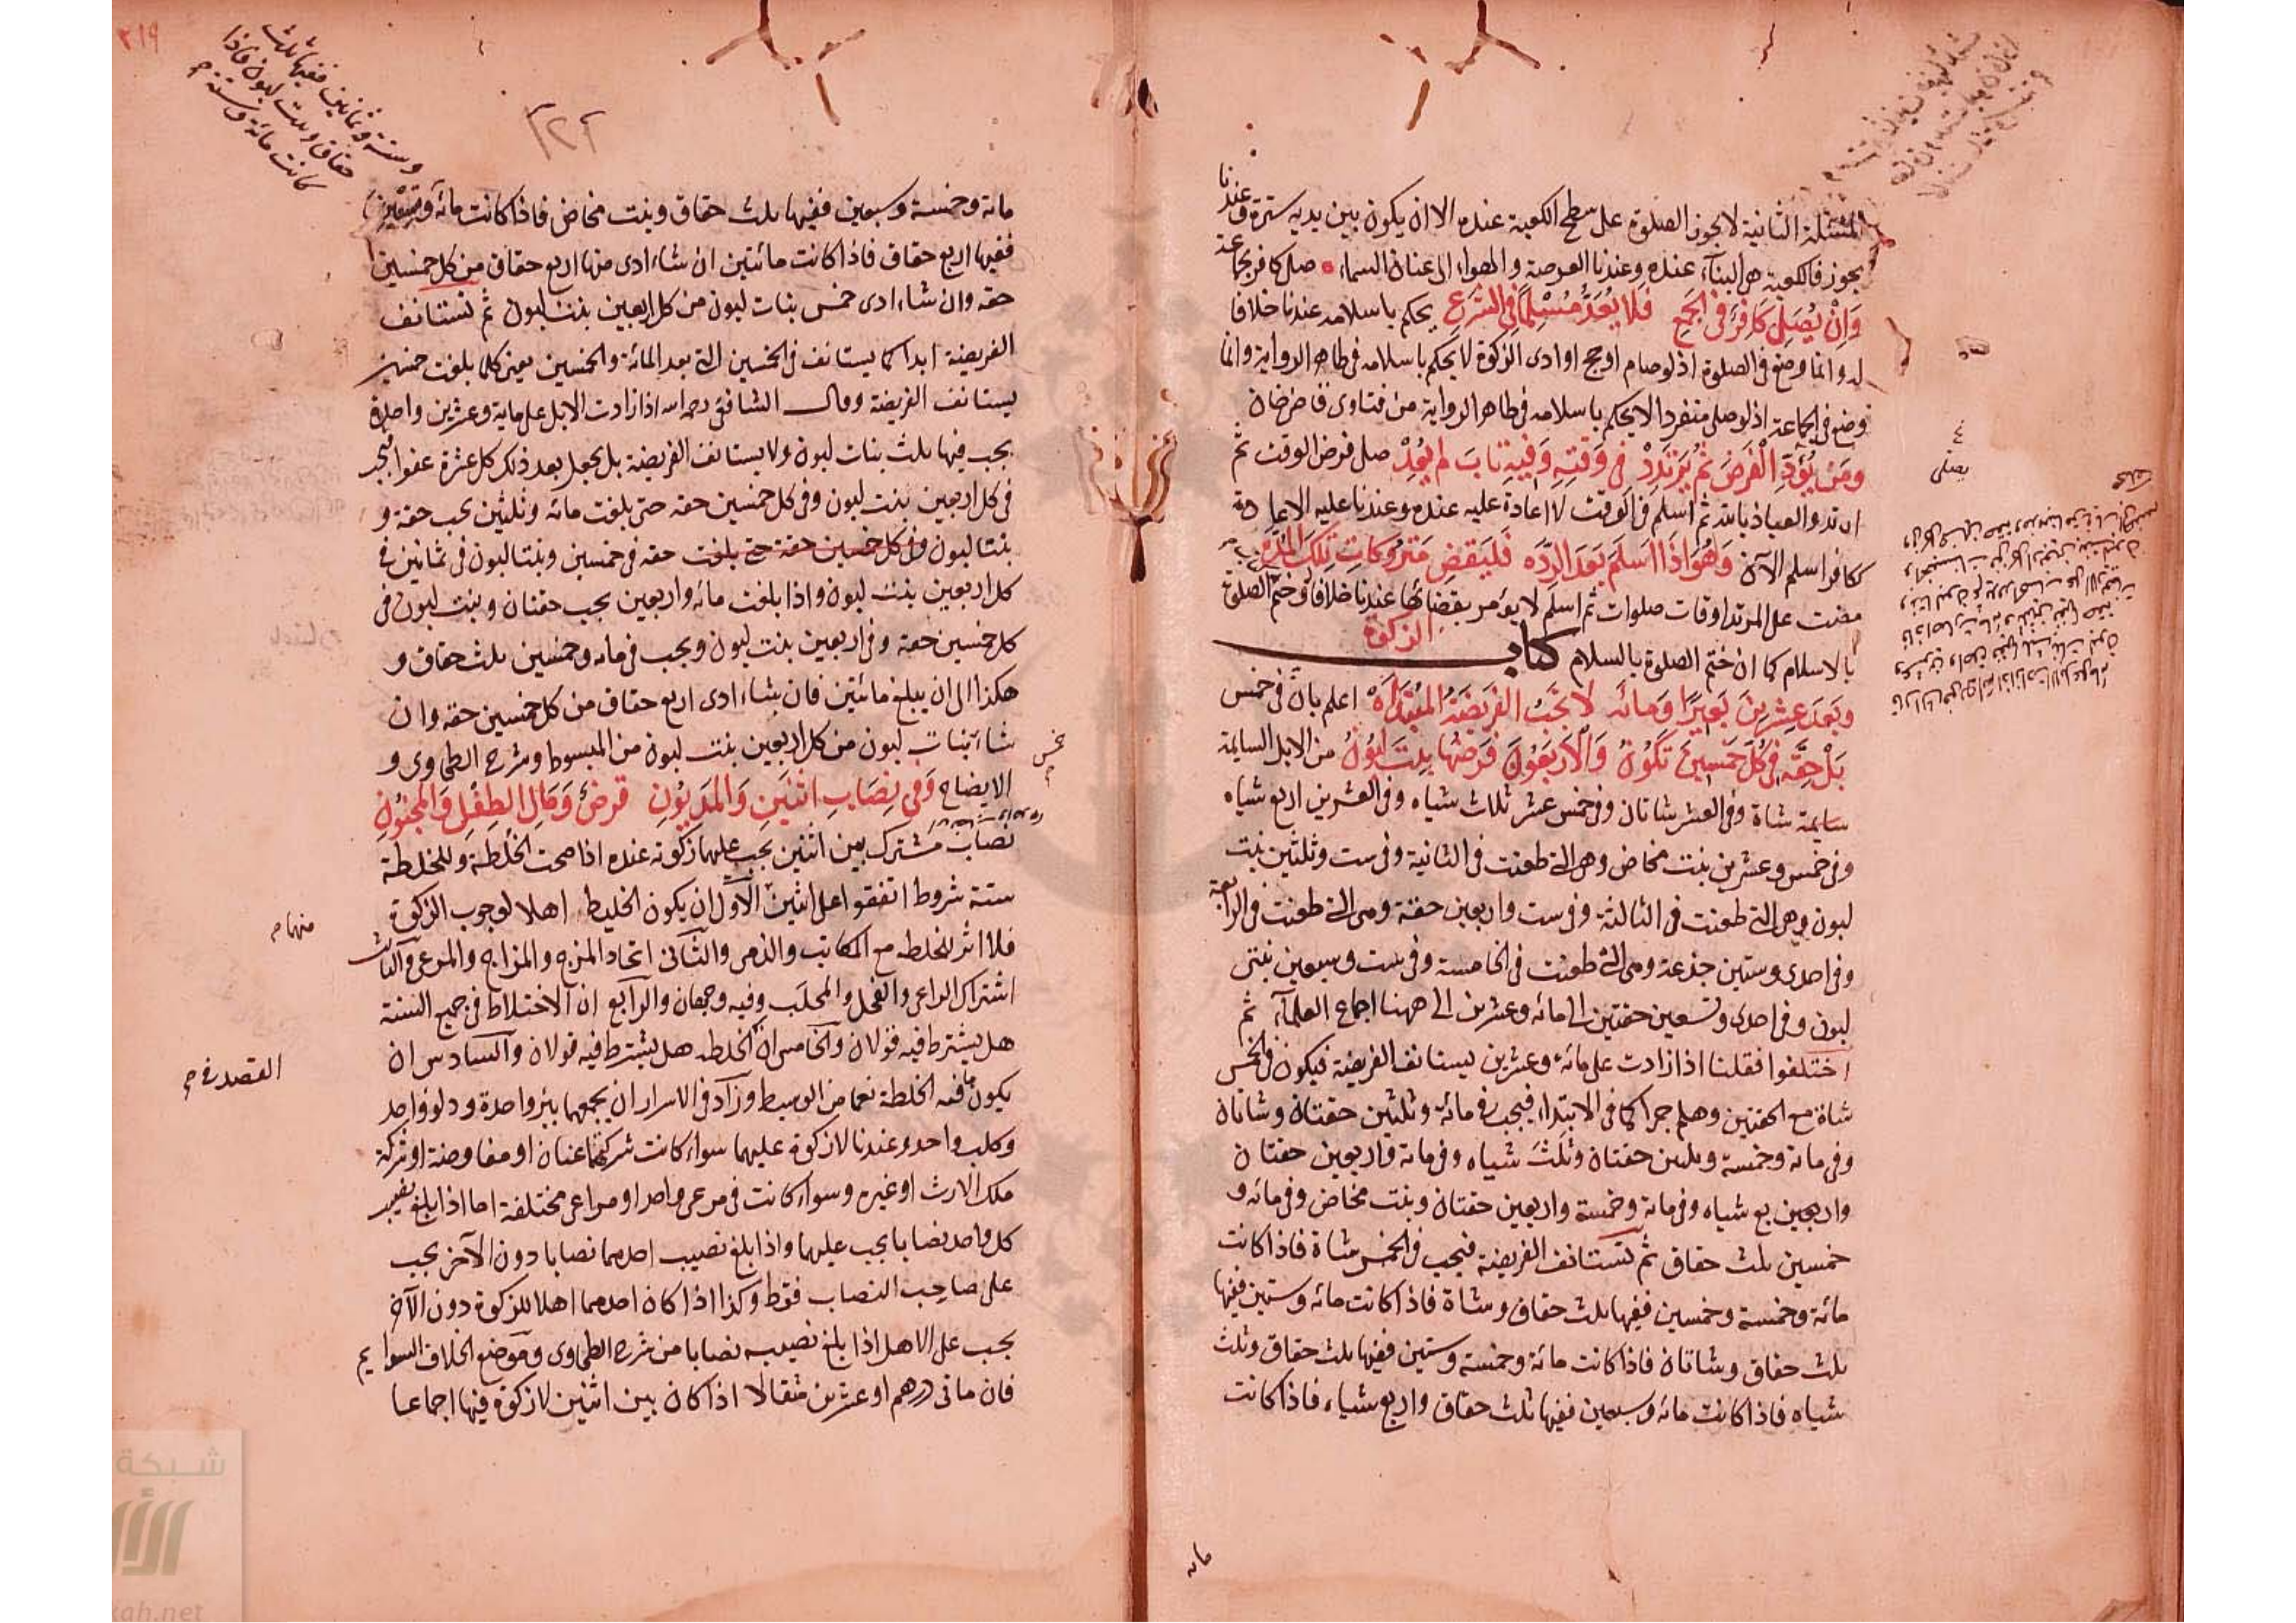 المسئلة الثانية لا يجوز الصلوة على سطح الكعبة عنده الا ان يكون بين يديه سترة وعندنا
يجوز فالكعبة هى البناء عنده وعندنا العرصة والهواء الى عنان السماء صلى كافر بجماعة
وَاِنْ يُصَلِّ كَافِرٌ فى الجمع فَلا يُعَدُّ مُسْلِمًا فى الشرع يحكم باسلامه عندنا خلافا
له وانما وضع فى الصلوة اذ لو صام او حج او ادى الزكوة لا يحكم باسلامه فى ظاهر الرواية وانما
وضع فى الجماعة اذ لو صلى منفردا لا يحكم باسلامه فى ظاهر الرواية من فتاوى قاضى خان
ومَنْ يُؤَدِّ الْفَرضَ ثُمَّ يَرْتَدِدْ فى وَقْتِهِ وَفِيهِ تَابَ لم يُعِدْ صلى فرض الوقت ثم
ارتد والعياذ بالله ثم اسلم فى الوقت لا اعادة عليه عنده وعندنا عليه الاعادة
ككافر اسلم الآن وَهُوَ اذَا اَسلَمَ بَعدَ الرِّدَّه فَليَقضِ مَتْرُوكَاتِ تِلكَ المُدَّه
مضت على المرتد اوقات صلوات ثم اسلم لا يؤمر بقضائها عندنا خلافا له وختم الصلوة
بالاسلام كما ان ختم الصلوة بالسلام كتاب الزكوة
وبَعدَ عِشرِينَ بَعِيرًا وَمائَه لا تَجبُ الفَرِيضَةُ المُبتَدَأَه اعلم بان فى خمس
بَلْ حِقَّه فى كُلِّ خَمْسِينَ تَكُونُ وَالاَربَعُونَ فَرضُها بِنتُ لَبُونُ من الابل السايمة
سايمة شاة وفى العشر شاتان وفى خمس عشر ثلاث شياه وفى العشرين اربع شياه
وفى خمس وعشرين بنت مخاض وهى التى طعنت فى الثانية وفى ست وثلثين بنت
لبون وهى التى طعنت فى الثالثة وفى ست واربعين حقة وهى التى طعنت فى الرابعة
وفى احدى وستين جذعة وهى التى طعنت فى الخامسة وفى ست وسبعين بنتى
لبون وفى احدى وتسعين حقتين الى مائه وعشرين الى ههنا اجماع العلماء ثم
اختلفوا فقلنا اذا زادت على مائة وعشرين يستانف الفريضة فيكون فى الخمس
شاة مع الحقتين وهلم جرا كما فى الابتداء فيجب فى مائة وثلثين حقتان وشاتان
وفى مائة وخمسة وثلثين حقتان وثلث شياه وفى مائة واربعين حقتان
واربعين بع شياه وفى مائة وخمسة واربعين حقتان وبنت مخاض وفى مائه و
خمسين ثلث حقاق ثم تستانف الفريضة فيجب فى الخمس شاة فاذا كانت
مائة وخمسة وخمسين ففيها ثلث حقاق وشاة فاذا كانت مائه وستين ففيها
ثلث حقاق وشاتان فاذا كانت مائة وخمسة وستين ففيها ثلث حقاق وثلث
شياه فاذا كانت مائه وسبعين ففيها ثلث حقاق واربع شياه فاذا كانت
يصلى
مائه
٢١٩
وستة وثمانين ففيها ثلث
حقاق وبنت لبون فاذا
كانت مائة وستة
مائة وخمسة وسبعين ففيها ثلث حقاق وبنت مخاض فاذا كانت مائه وتسعين
ففيها اربع حقاق فاذا كانت مائتين ان شاء ادى منها اربع حقاق من كل خمسين
حقه وان شاء ادى خمس بنات لبون من كل اربعين بنت لبون ثم تستانف
الفريضة ابدا كما يستانف فى الخمسين التى بعد المائة والخمسين يعنى كلما بلغت خمسين
يستانف الفريضة وقال الشافعى رحمه الله اذا زادت الابل على ماية وعشرين واحدة
يجب فيها ثلث بنات لبون ولا يستانف الفريضة بل يجعل بعد ذلك كل عشرة عفوا فيجب
فى كل اربعين بنت لبون وفى كل خمسين حقه حتى بلغت مائه وثلثين يجب حقة و
بنتا لبون وفى كل خمسين حقة حتى بلغت حقه فى خمسين وبنتا لبون فى ثمانين فى
كل اربعين بنت لبون واذا بلغت مائه واربعين يجب حقتان وبنت لبون فى
كل خمسين حقة وفى اربعين بنت لبون ويجب فى مائه وخمسين ثلث حقاق و
هكذا الى ان يبلغ مائتين فان شاء ادى اربع حقاق من كل خمسين حقه وان
شاء بنات لبون من كل اربعين بنت لبون من المبسوط وشرح الطحاوى و
خمس
الايضاح وَفى نِصَابِ اثنَينِ وَالمَديُونِ فرضٌ وَمَالِ الطِفْلِ وَالمجنُونِ
نصاب مشترك بين اثنين يجب عليهما زكوته عنده اذا صحت الخلطة وللخلطة
ستة شروط اتفقوا على اثنين الاول ان يكون الخليط اهلا لوجوب الزكوة
منها
فلا اثر للخلطه مع المكاتب والذمى والثانى اتحاد المسرح والمراح والمرعى والثالث
اشتراك الراعى والفحل والمحلب وفيه وجهان والرابع ان الاختلاط فى جميع السنة
هل يشترط فيه قولان والخامس ان الخلطه هل يشترط فيه قولان والسادس ان
القصد فى
يكون ما فيه الخلطة نعما من الوسيط وزاد فى الاسرار ان يجمعها بئر واحدة ودلو واحد
وكلب واحد وعندنا لا زكوة عليهما سواء كانت شركتهما عنان او مفاوضة او شركة
ملك الارث او غيره وسواء كانت فى مرعى واحد او مراعى مختلفة اما اذا بلغ نصيب
كل واحد نصابا يجب عليهما واذا بلغ نصيب احدهما نصابا دون الآخر يجب
على صاحب النصاب فقط وكذا اذا كان احدهما اهلا للزكوة دون الآخر
يجب على الاهل اذا بلغ نصيبه نصابا من شرح الطحاوى وموضع الخلاف السوايم
فان مائتى درهم او عشرين مثقالا اذا كان بين اثنين لا زكوة فيها اجماعا
شبكة